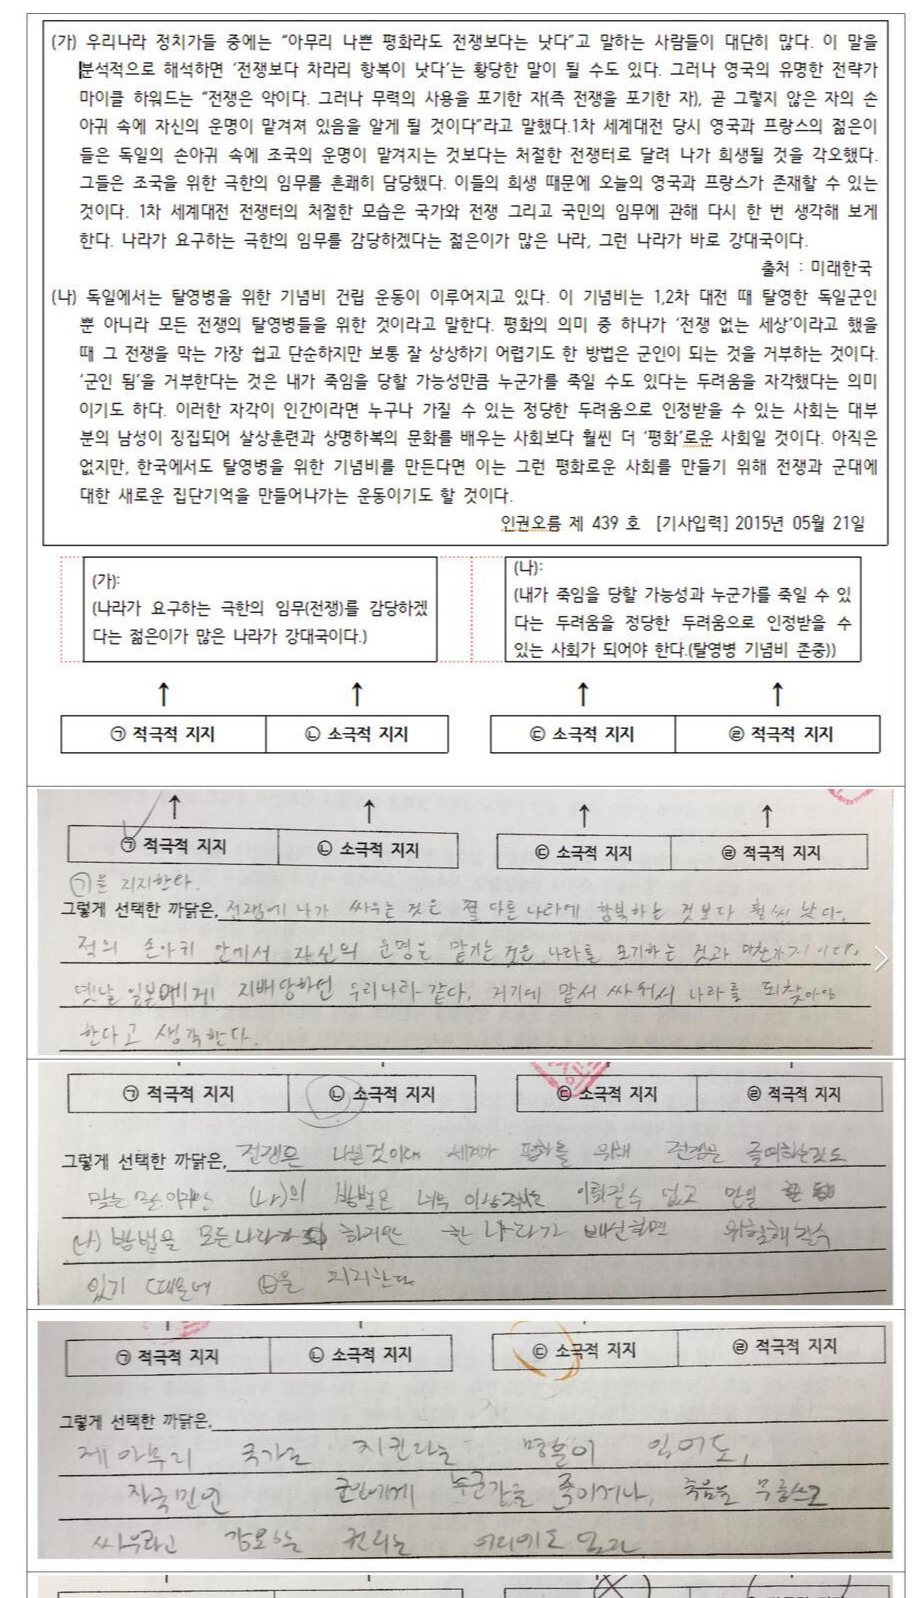 (가) 우리나라 정치가들 중에는 “아무리 나쁜 평화라도 전쟁보다는 낫다”고 말하는 사람들이 대단히 많다. 이 말을
분석적으로 해석하면 ‘전쟁보다 차라리 항복이 낫다’는 황당한 말이 될 수도 있다. 그러나 영국의 유명한 전략가
마이클 하워드는 “전쟁은 악이다. 그러나 무력의 사용을 포기한 자(즉 전쟁을 포기한 자), 곧 그렇지 않은 자의 손
아귀 속에 자신의 운명이 맡겨져 있음을 알게 될 것이다”라고 말했다.1차 세계대전 당시 영국과 프랑스의 젊은이
들은 독일의 손아귀 속에 조국의 운명이 맡겨지는 것보다는 처절한 전쟁터로 달려 나가 희생될 것을 각오했다.
그들은 조국을 위한 극한의 임무를 흔쾌히 담당했다. 이들의 희생 때문에 오늘의 영국과 프랑스가 존재할 수 있는
것이다. 1차 세계대전 전쟁터의 처절한 모습은 국가와 전쟁 그리고 국민의 임무에 관해 다시 한 번 생각해 보게
한다. 나라가 요구하는 극한의 임무를 감당하겠다는 젊은이가 많은 나라, 그런 나라가 바로 강대국이다.
출처 : 미래한국
(나) 독일에서는 탈영병을 위한 기념비 건립 운동이 이루어지고 있다. 이 기념비는 1,2차 대전 때 탈영한 독일군인
뿐 아니라 모든 전쟁의 탈영병들을 위한 것이라고 말한다. 평화의 의미 중 하나가 ‘전쟁 없는 세상’이라고 했을
때 그 전쟁을 막는 가장 쉽고 단순하지만 보통 잘 상상하기 어렵기도 한 방법은 군인이 되는 것을 거부하는 것이다.
‘군인 됨’을 거부한다는 것은 내가 죽임을 당할 가능성만큼 누군가를 죽일 수도 있다는 두려움을 자각했다는 의미
이기도 하다. 이러한 자각이 인간이라면 누구나 가질 수 있는 정당한 두려움으로 인정받을 수 있는 사회는 대부
분의 남성이 징집되어 살상훈련과 상명하복의 문화를 배우는 사회보다 훨씬 더 ‘평화’로운 사회일 것이다. 아직은
없지만, 한국에서도 탈영병을 위한 기념비를 만든다면 이는 그런 평화로운 사회를 만들기 위해 전쟁과 군대에
대한 새로운 집단기억을 만들어나가는 운동이기도 할 것이다.
인권오름 제 439 호 [기사입력] 2015년 05월 21일
(가):
(나라가 요구하는 극한의 임무(전쟁)를 감당하겠
다는 젊은이가 많은 나라가 강대국이다.)
(나):
(내가 죽임을 당할 가능성과 누군가를 죽일 수 있
다는 두려움을 정당한 두려움으로 인정받을 수
있는 사회가 되어야 한다.(탈영병 기념비 존중))
㉠ 적극적 지지 ㉡ 소극적 지지 ㉢ 소극적 지지 ㉣ 적극적 지지
㉠ 적극적 지지 ㉡ 소극적 지지 ㉢ 소극적 지지 ㉣ 적극적 지지
㉠을 지지한다.
그렇게 선택한 까닭은, 전쟁에 나가 싸우는 것은 다른 나라에 항복하는 것보다 훨씬 낫다.
적의 손아귀 안에서 자신의 운명을 맡기는 것은 나라를 포기하는 것과 마찬가지이다.
옛날 일본에게 지배당하던 우리나라 같다. 거기에 맞서 싸워서 나라를 되찾아야
한다고 생각한다.
㉠ 적극적 지지 ㉡ 소극적 지지 ㉢ 소극적 지지 ㉣ 적극적 지지
그렇게 선택한 까닭은, 전쟁은 나쁜것이며 세계가 평화를 위해 전쟁을 금지하는것도
맞는 말이지만 (나)의 방법은 너무 이상적 이뤄질수 없고 만일
(나) 방법을 모든나라가 하지만 한 나라가 배신하면 위험해질수
있기 때문에 ㉡을 지지한다
㉠ 적극적 지지 ㉡ 소극적 지지 ㉢ 소극적 지지 ㉣ 적극적 지지
그렇게 선택한 까닭은,
제 아무리 국가를 지킨다는 명분이 있어도,
자국민인 군인에게 누군가를 죽이거나, 죽음을 무릅쓰고
싸우라고 강요하는 권리는 어디에도 없다